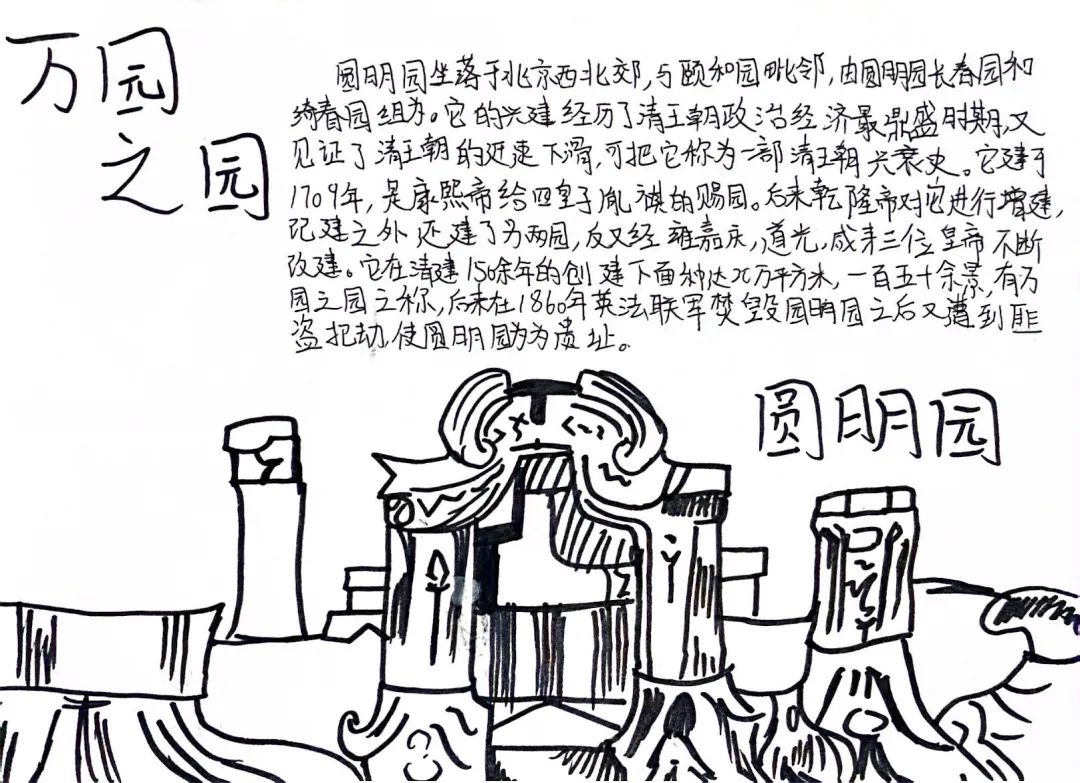 万园
之园
圆明园坐落于北京西北郊,与颐和园毗邻,由圆明园长春园和
绮春园组为。它的兴建经历了清王朝政治经济最鼎盛时期,又
见证了清王朝的迅速下滑,可把它称为一部清王朝兴衰史。它建于
1709年,是康熙帝给四皇子胤禛的赐园。后来乾隆帝对它进行增建,
建之外还建了另两园,反又经雍嘉庆,道光,咸丰三位皇帝不断
改建。它在清建150余年的创建下面种达万平方米,一百五十余景,有万
园之园之称,后来在1860年英法联军焚毁园明园之后又遭到匪
盗把劫,使圆明园为遗址。
圆明园